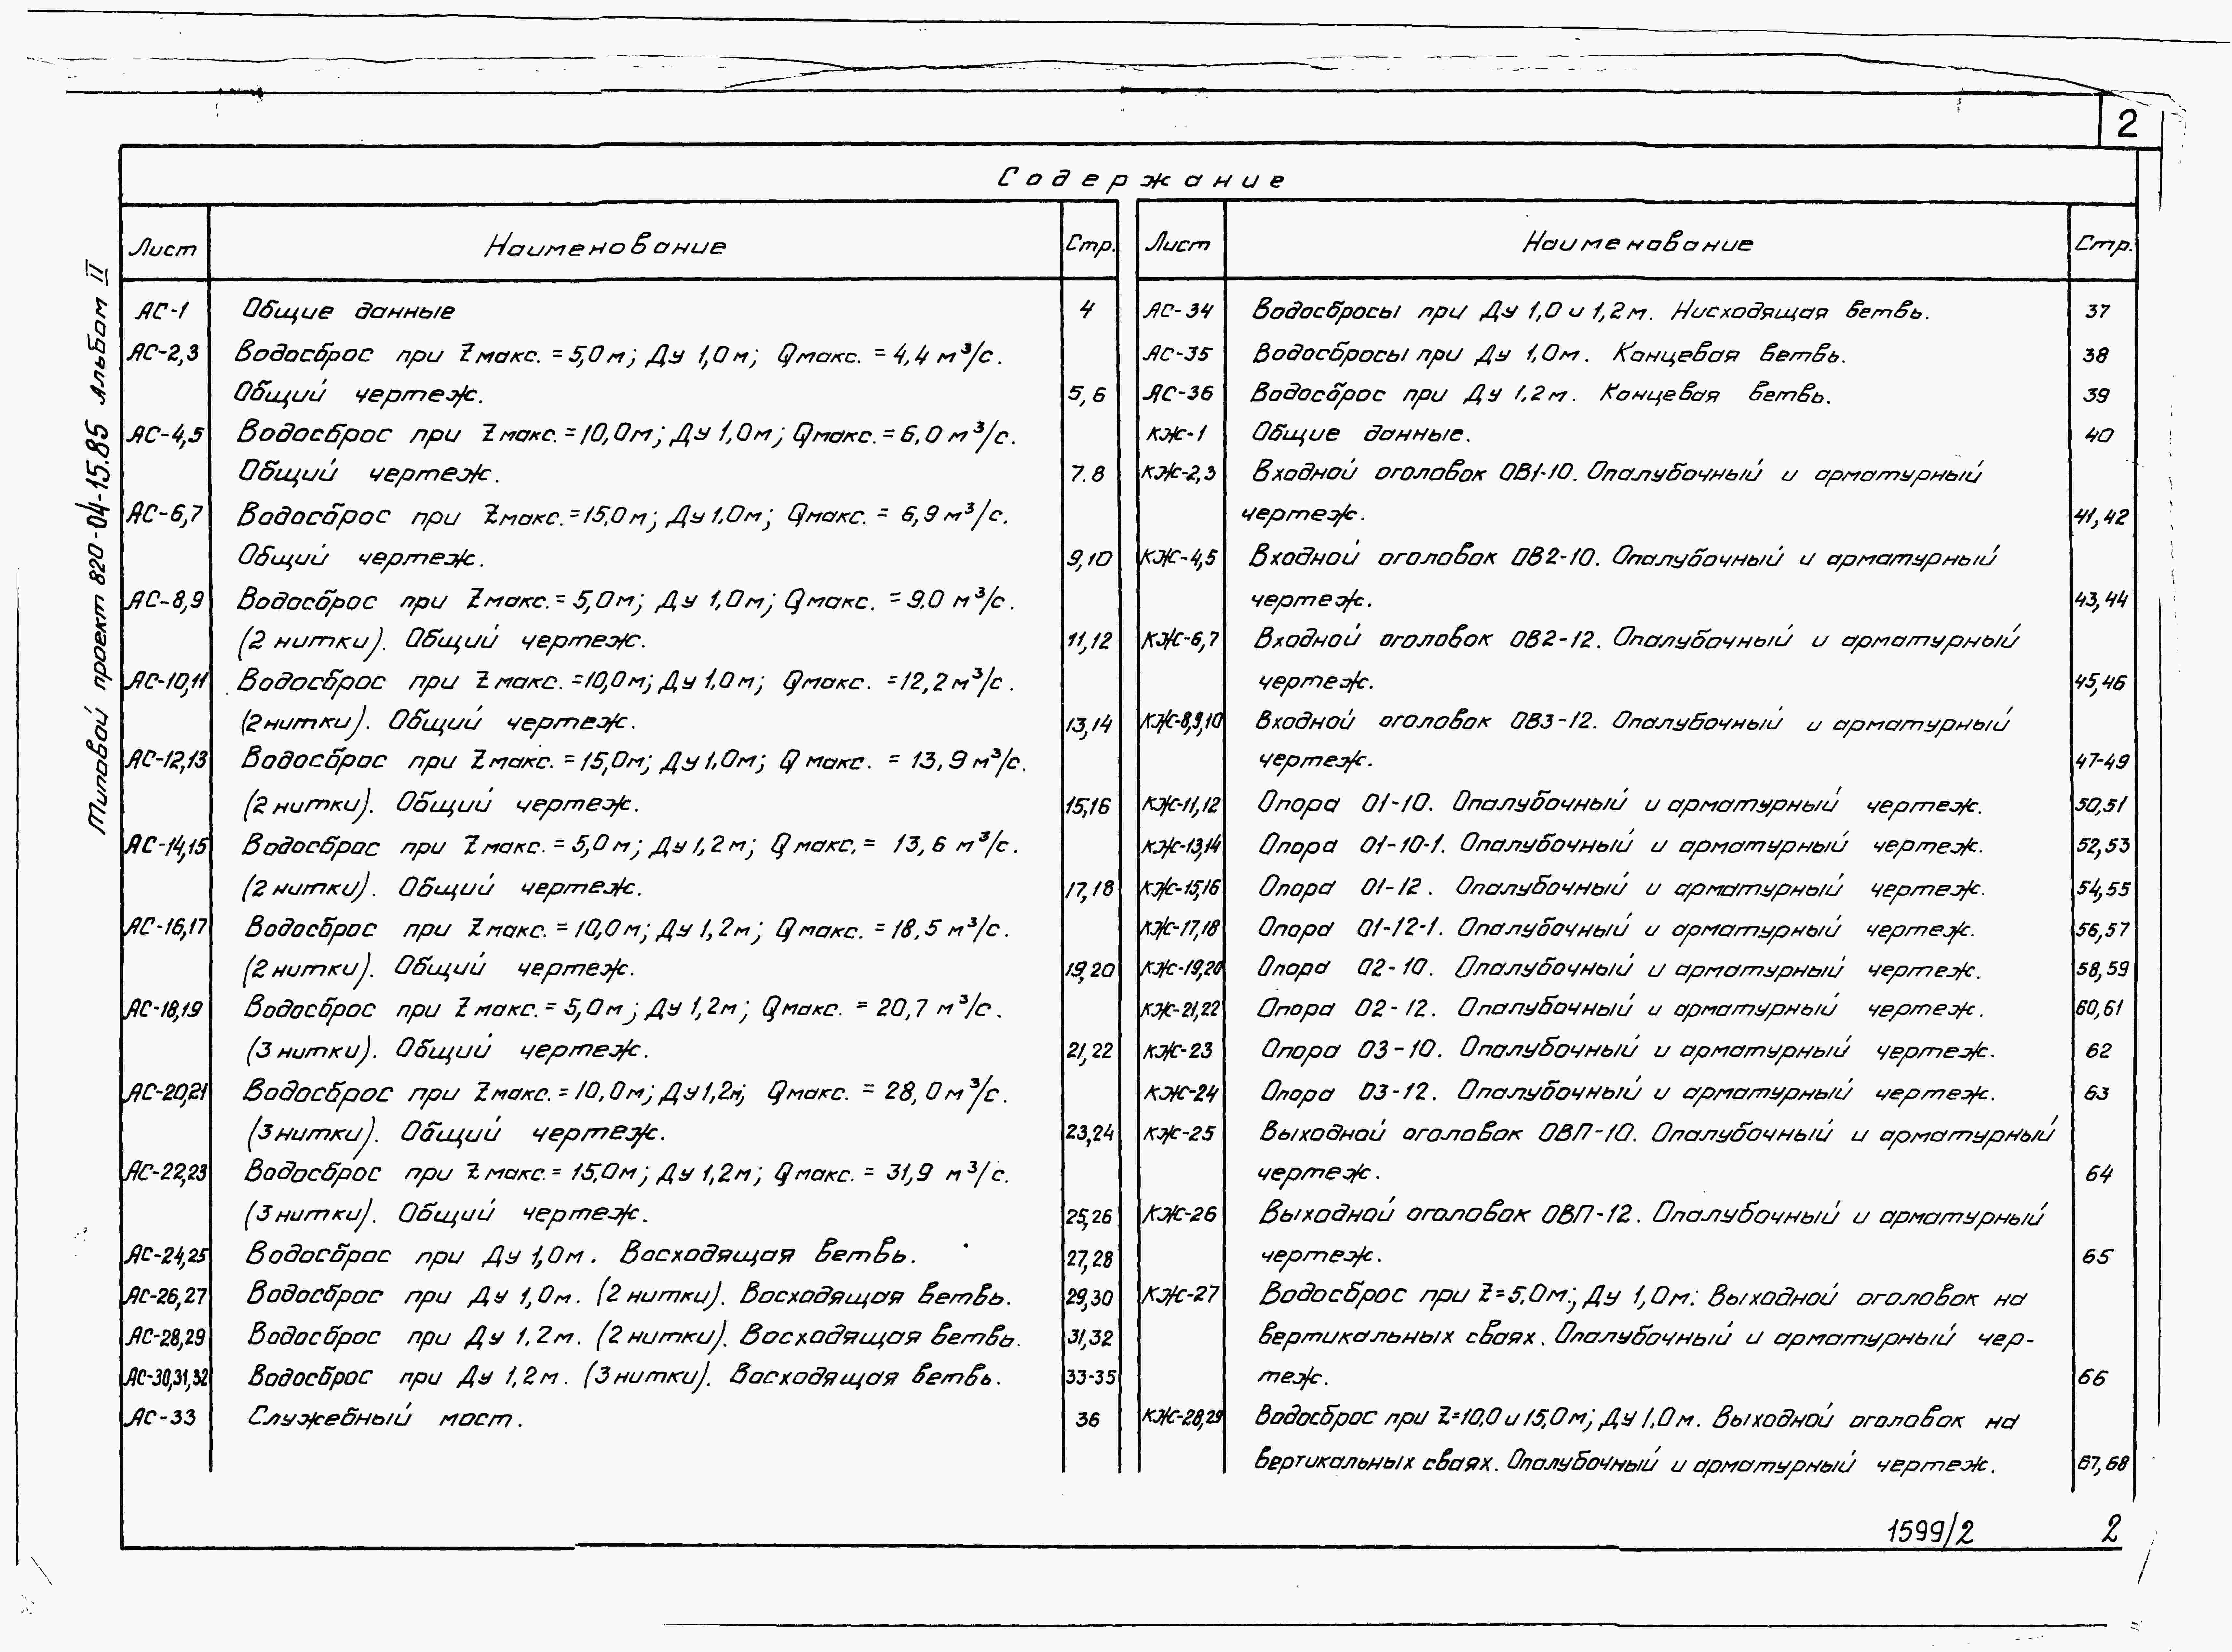 2
Содержание
Типовой проект 820-04-15.85 Альбом II
Лист Наименование Стр.
АС-1 Общие данные 4
АС-2,3 Водосброс при Zмакс. = 5,0м; Ду 1,0м; Qмакс. = 4,4 м³/с.
Общий чертеж. 5,6
АС-4,5 Водосброс при Zмакс. = 10,0м; Ду 1,0м; Qмакс. = 6,0 м³/с.
Общий чертеж. 7.8
АС-6,7 Водосброс при Zмакс. = 15,0м; Ду 1,0м; Qмакс. = 6,9 м³/с.
Общий чертеж. 9,10
АС-8,9 Водосброс при Zмакс. = 5,0м; Ду 1,0м; Qмакс. = 9.0 м³/с.
(2 нитки). Общий чертеж. 11,12
АС-10,11 Водосброс при Zмакс. = 10,0м; Ду 1,0м; Qмакс. = 12,2 м³/с.
(2 нитки). Общий чертеж. 13,14
АС-12,13 Водосброс при Zмакс. = 15,0м; Ду 1,0м; Qмакс. = 13,9 м³/с.
(2 нитки). Общий чертеж. 15,16
АС-14,15 Водосброс при Zмакс. = 5,0м; Ду 1,2м; Qмакс. = 13,6 м³/с.
(2 нитки). Общий чертеж. 17,18
АС-16,17 Водосброс при Zмакс. = 10,0м; Ду 1,2м; Qмакс. = 18,5 м³/с.
(2 нитки). Общий чертеж. 19,20
АС-18,19 Водосброс при Zмакс. = 5,0м; Ду 1,2м; Qмакс. = 20,7 м³/с.
(3 нитки). Общий чертеж. 21,22
АС-20,21 Водосброс при Zмакс. = 10,0м; Ду 1,2м; Qмакс. = 28,0 м³/с.
(3 нитки). Общий чертеж. 23,24
АС-22,23 Водосброс при Zмакс. = 15,0м; Ду 1,2м; Qмакс. = 31,9 м³/с.
(3 нитки). Общий чертеж. 25,26
АС-24,25 Водосброс при Ду 1,0м. Восходящая ветвь. 27,28
АС-26,27 Водосброс при Ду 1,0м. (2 нитки). Восходящая ветвь. 29,30
АС-28,29 Водосброс при Ду 1,2м. (2 нитки). Восходящая ветвь. 31,32
АС-30,31,32 Водосброс при Ду 1,2м. (3 нитки). Восходящая ветвь. 33-35
АС-33 Служебный мост. 36
Лист Наименование Стр.
АС-34 Водосбросы при Ду 1,0 и 1,2м. Нисходящая ветвь. 37
АС-35 Водосбросы при Ду 1,0м. Концевая ветвь. 38
АС-36 Водосброс при Ду 1,2м. Концевая ветвь. 39
КЖ-1 Общие данные. 40
КЖ-2,3 Входной оголовок ОВ1-10. Опалубочный и арматурный
чертеж. 41,42
КЖ-4,5 Входной оголовок ОВ2-10. Опалубочный и арматурный
чертеж. 43,44
КЖ-6,7 Входной оголовок ОВ2-12. Опалубочный и арматурный
чертеж. 45,46
КЖ-8,9,10 Входной оголовок ОВ3-12. Опалубочный и арматурный
чертеж. 47-49
КЖ-11,12 Опора О1-10. Опалубочный и арматурный чертеж. 50,51
КЖ-13,14 Опора О1-10-1. Опалубочный и арматурный чертеж. 52,53
КЖ-15,16 Опора О1-12. Опалубочный и арматурный чертеж. 54,55
КЖ-17,18 Опора О1-12-1. Опалубочный и арматурный чертеж. 56,57
КЖ-19,20 Опора О2-10. Опалубочный и арматурный чертеж. 58,59
КЖ-21,22 Опора О2-12. Опалубочный и арматурный чертеж. 60,61
КЖ-23 Опора О3-10. Опалубочный и арматурный чертеж. 62
КЖ-24 Опора О3-12. Опалубочный и арматурный чертеж. 63
КЖ-25 Выходной оголовок ОВП-10. Опалубочный и арматурный
чертеж. 64
КЖ-26 Выходной оголовок ОВП-12. Опалубочный и арматурный
чертеж. 65
КЖ-27 Водосброс при Z=5,0м; Ду 1,0м. Выходной оголовок на
вертикальных сваях. Опалубочный и арматурный чер-
теж. 66
КЖ-28,29 Водосброс при Z=10,0 и 15,0м; Ду 1,0м. Выходной оголовок на
вертикальных сваях. Опалубочный и арматурный чертеж. 67,68
1599/2 2